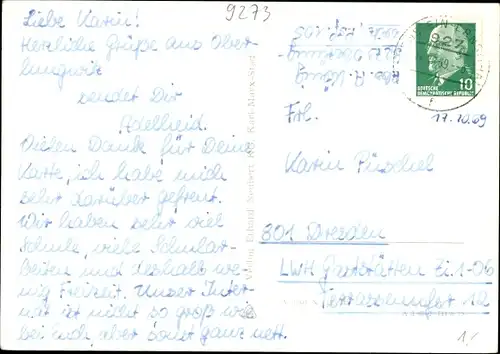 9273
Liebe Karin!
Herzliche Grüße aus Ober-
lungwitz
sendet Dir
Adelheid.
Vielen Dank für Deine
Karte, ich habe mich
sehr darüber gefreut.
Wir haben sehr viel
Schule, viele Schular-
beiten und deshalb we-
nig Freizeit. Unser Inter-
nat ist nicht so groß wie
bei Euch, aber sonst ganz nett.
Abs. A. König
9273 Oberlung-
witz
927
10
DEUTSCHE
DEMOKRATISCHE REPUBLIK
17.10.69
Frl.
Karin Püschel
801 Dresden
LWH Gaststätten Zi. 1-06
Terrassenufer 12
Karl-Marx-Stadt